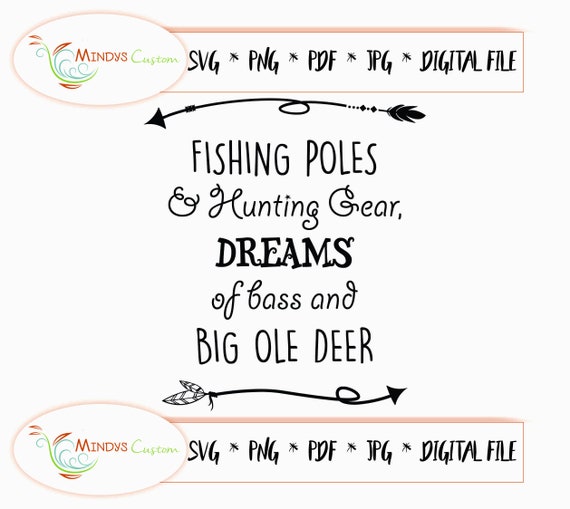 Mindys Custom
SVG * PNG * PDF * JPG * DIGITAL FILE
FISHING POLES
& Hunting Gear,
DREAMS
of bass and
BIG OLE DEER
Mindys Custom
SVG * PNG * PDF * JPG * DIGITAL FILE